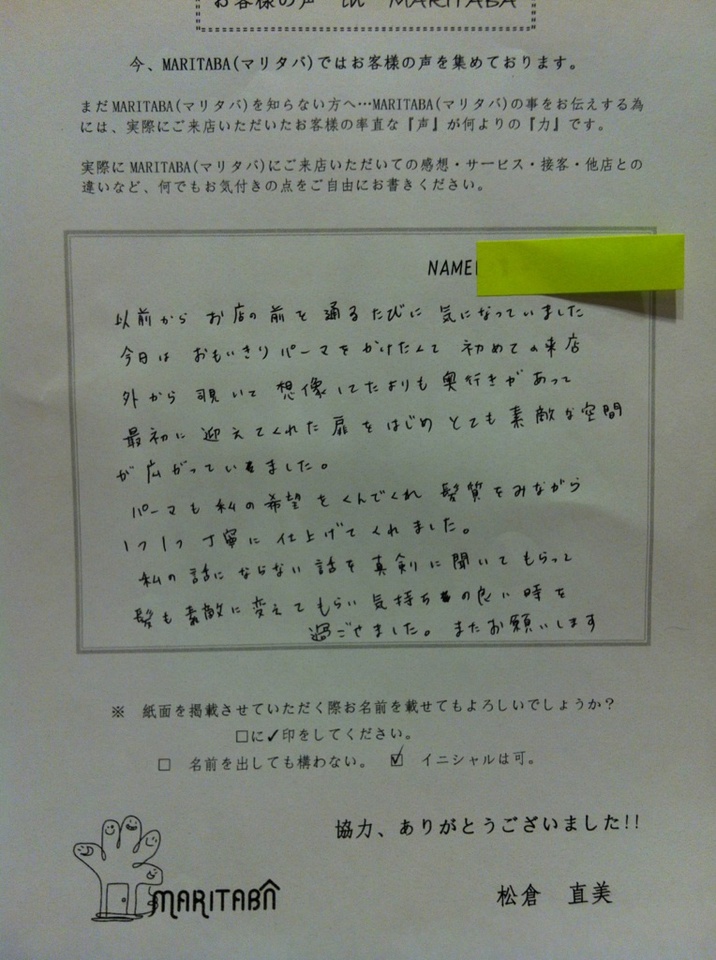 お客様の声 in MARITABA
今、MARITABA(マリタバ)ではお客様の声を集めております。
まだMARITABA(マリタバ)を知らない方へ…MARITABA(マリタバ)の事をお伝えする為
には、実際にご来店いただいたお客様の率直な『声』が何よりの『力』です。
実際にMARITABA(マリタバ)にご来店いただいての感想・サービス・接客・他店との
違いなど、何でもお気付きの点をご自由にお書きください。
NAME
以前から お店の前を 通るたびに 気になっていました
今日は おもいきり パーマをかけたくて 初めての来店
外から 覗いて 想像してたよりも 奥行きがあって
最初に 迎えてくれた 扉をはじめ とても 素敵な空間
が広がっていました。
パーマも 私の希望をくんでくれ 髪質をみながら
1つ1つ 丁寧に 仕上げてくれました。
私の 話にならない 話を 真剣に聞いてもらって
髪も素敵に変えてもらい 気持ちの良い 時を
過ごせました。またお願いします
※ 紙面を掲載させていただく際お名前を載せてもよろしいでしょうか?
□に✓印をしてください。
□ 名前を出しても構わない。 ☑ イニシャルは可。
協力、ありがとうございました!!
MARITABA
松倉 直美